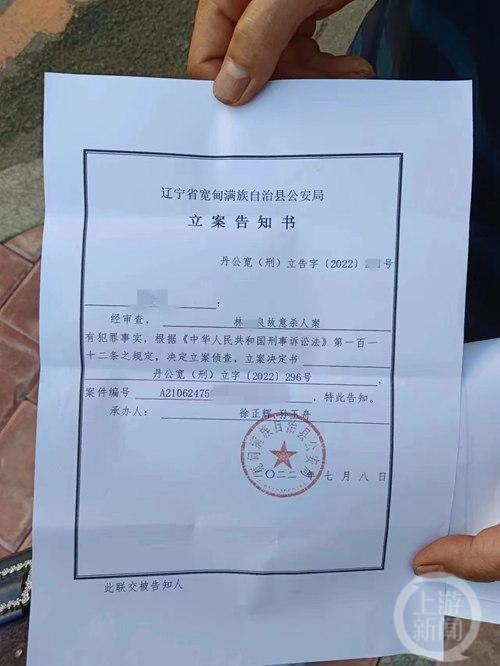 辽宁省宽甸满族自治县公安局
立案告知书
丹公宽（刑）立告字〔2022〕 号
：
经审查， 林 良故意杀人案
有犯罪事实，根据《中华人民共和国刑事诉讼法》第一百一
十二条之规定，决定立案侦查，立案决定书
丹公宽（刑）立字〔2022〕296号 ，
案件编号 A21062475 ，特此告知。
承办人： 徐正辉,孙玉舟
宽甸满族自治县公安局
二〇二二年七月八日
此联交被告知人
上游新闻